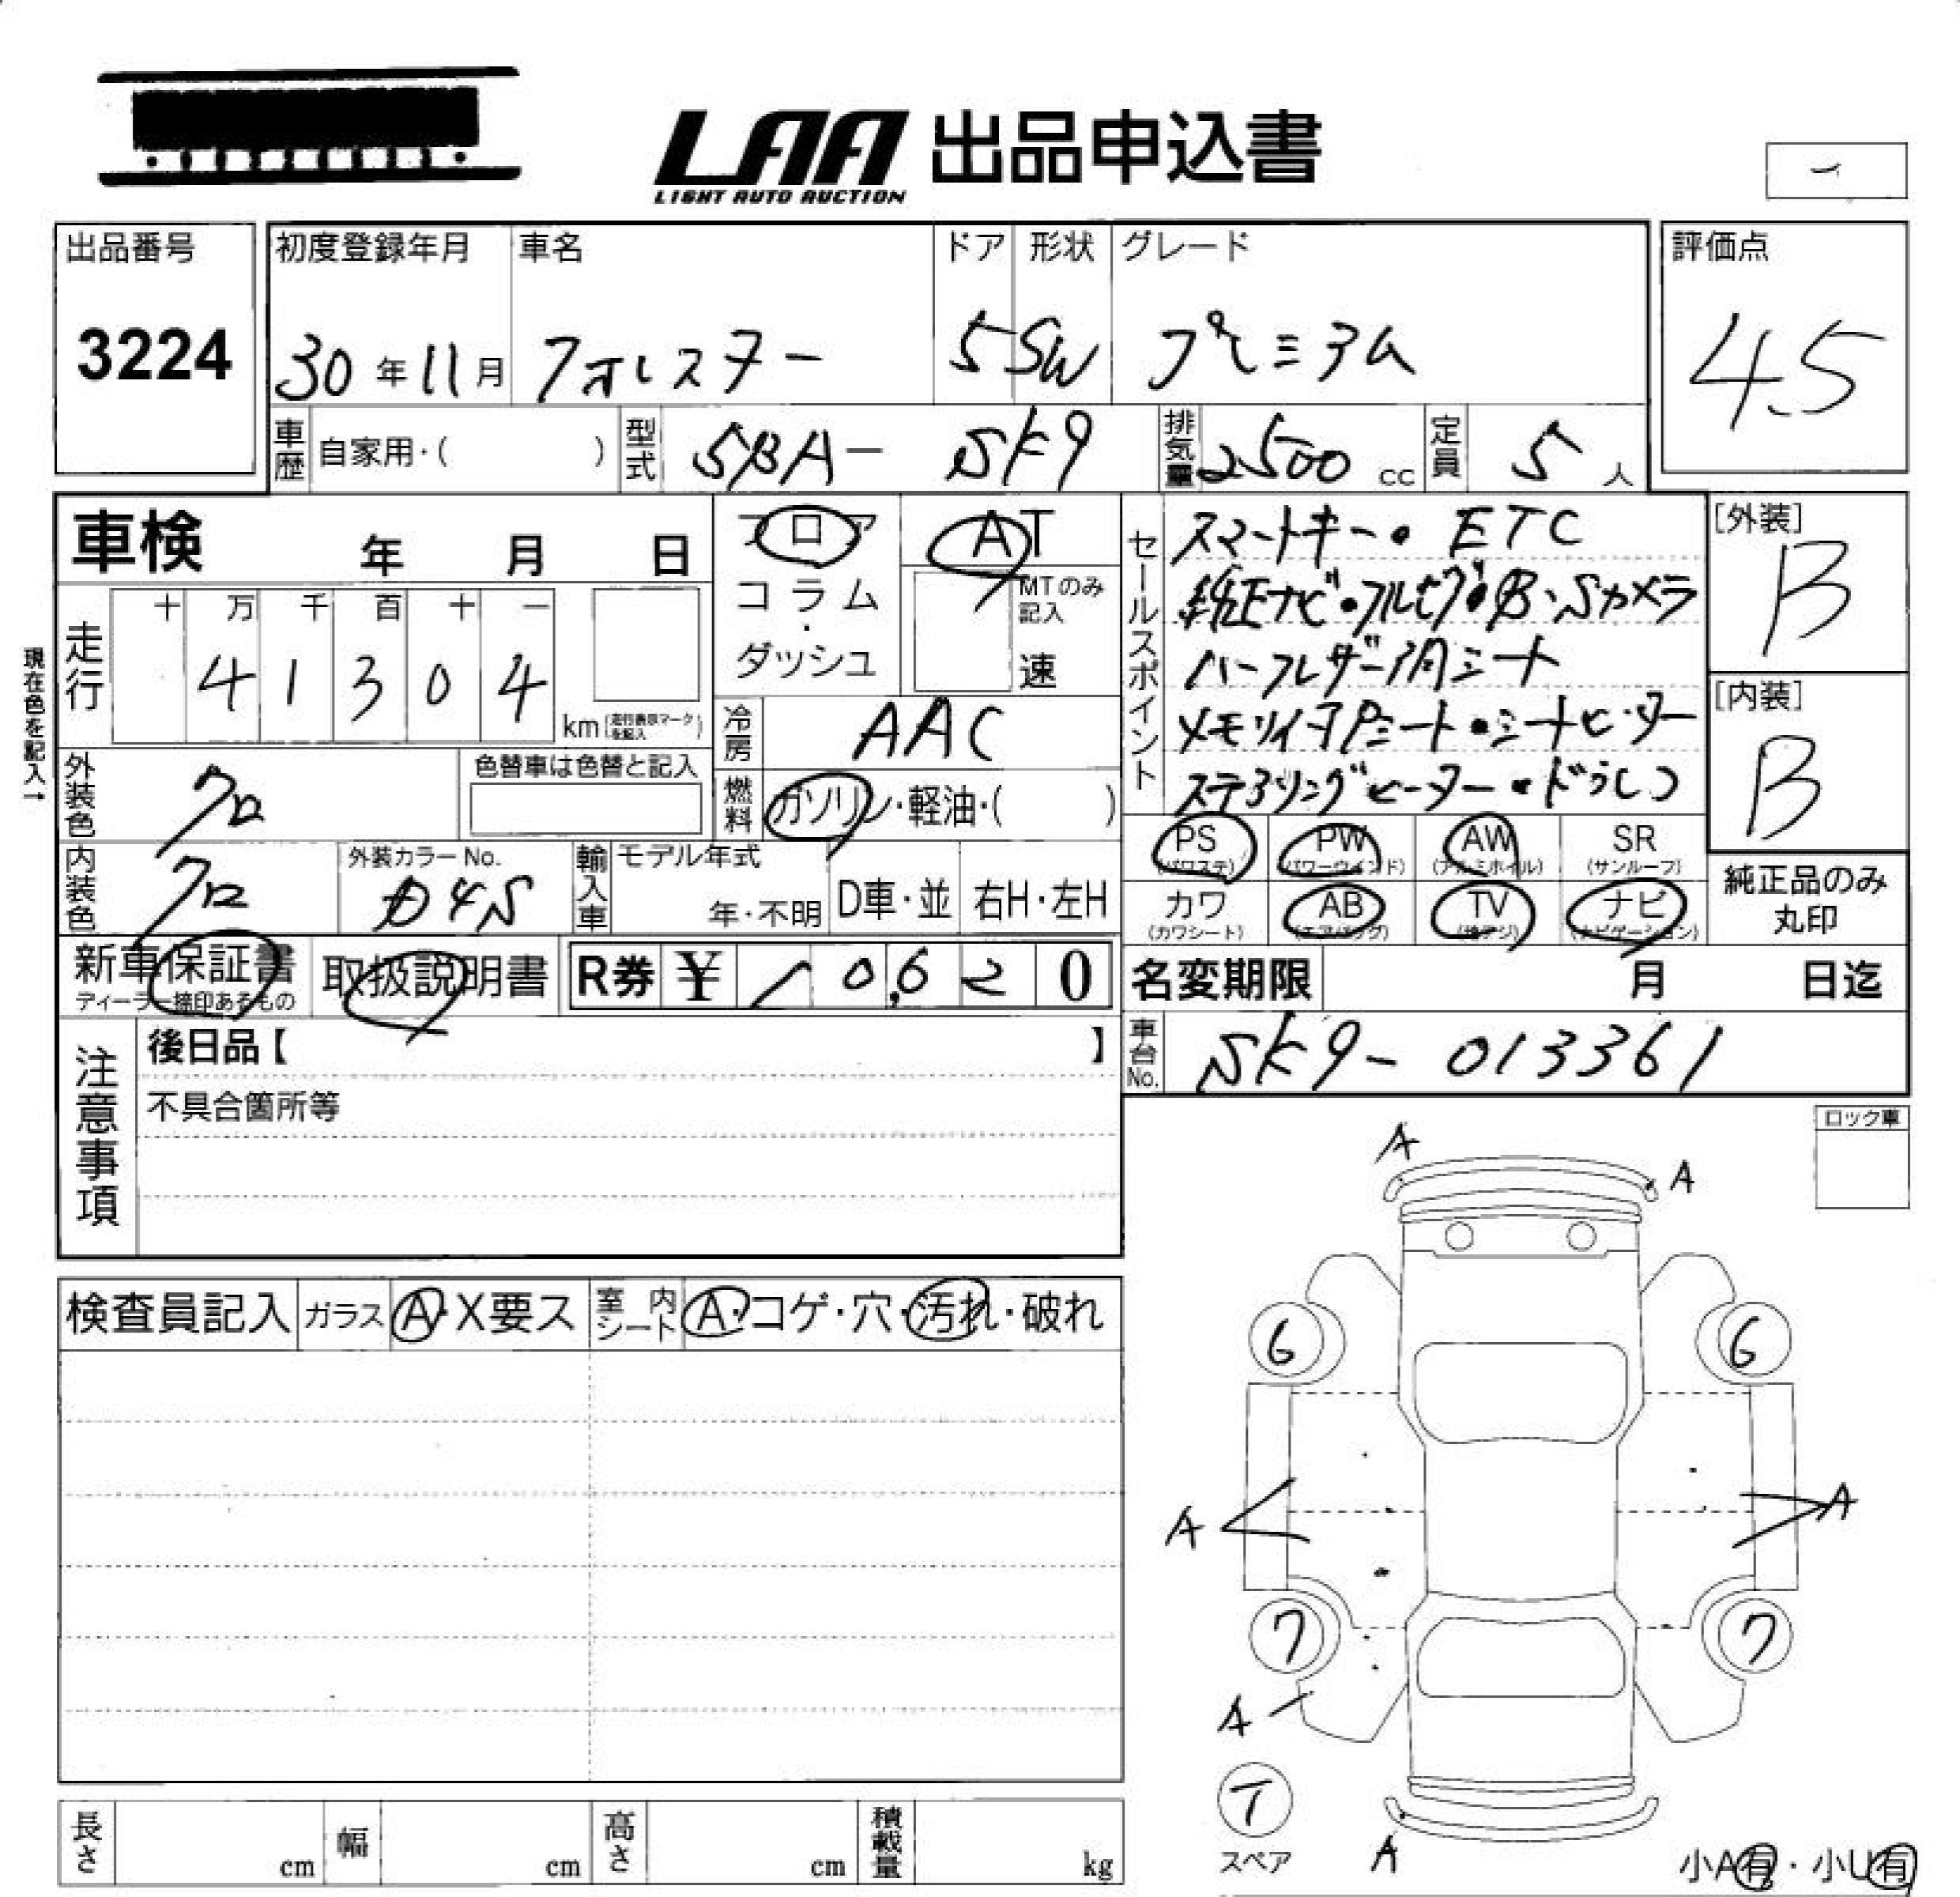 LAA 出品申込書
LIGHT AUTO AUCTION
出品番号 初度登録年月 車名 ドア 形状 グレード 評価点
3224 30年11月 フォレスター 5 SW プレミアム 4.5
車歴 自家用・( ) 型式 5BA- SK9 排気量 2500 cc 定員 5 人
車検 年 月 日
フロア
コラム・ダッシュ
AT
MTのみ記入
速
現在色を記入→
走行 十 万 千 百 十 一
4 1 3 0 4 km (走行表示マークを記入)
冷房 AAC
燃料 ガソリン・軽油・( )
外装色 クロ 色替車は色替と記入
内装色 クロ 外装カラーNo. D4S 輸入車 モデル年式 年・不明 D車・並 右H・左H
新車保証書 取扱説明書 R券 ¥ 10,620
ディーラー捺印あるもの
セールスポイント
スマートキー・ETC
純正ナビ・フルセグ・B・Sカメラ
ハーフレザー調シート
メモリ付Pシート・シートヒーター
ステアリングヒーター・ドラレコ
[外装]
B
[内装]
B
PS PW AW SR
(パワステ) (パワーウインド) (アルミホイル) (サンルーフ)
カワ AB TV ナビ
(カワシート) (エアバッグ) (地デジ) (ナビゲーション)
純正品のみ
丸印
名変期限 月 日迄
車台No. SK9- 013361
注意事項
後日品【 】
不具合箇所等
ロック車
検査員記入 ガラス A・X要ス 室内シート A・コゲ・穴・汚れ・破れ
A
A
6 6
A A
7 7
A
T
スペア
A
小A有・小U有
長さ cm 幅 cm 高さ cm 積載量 kg